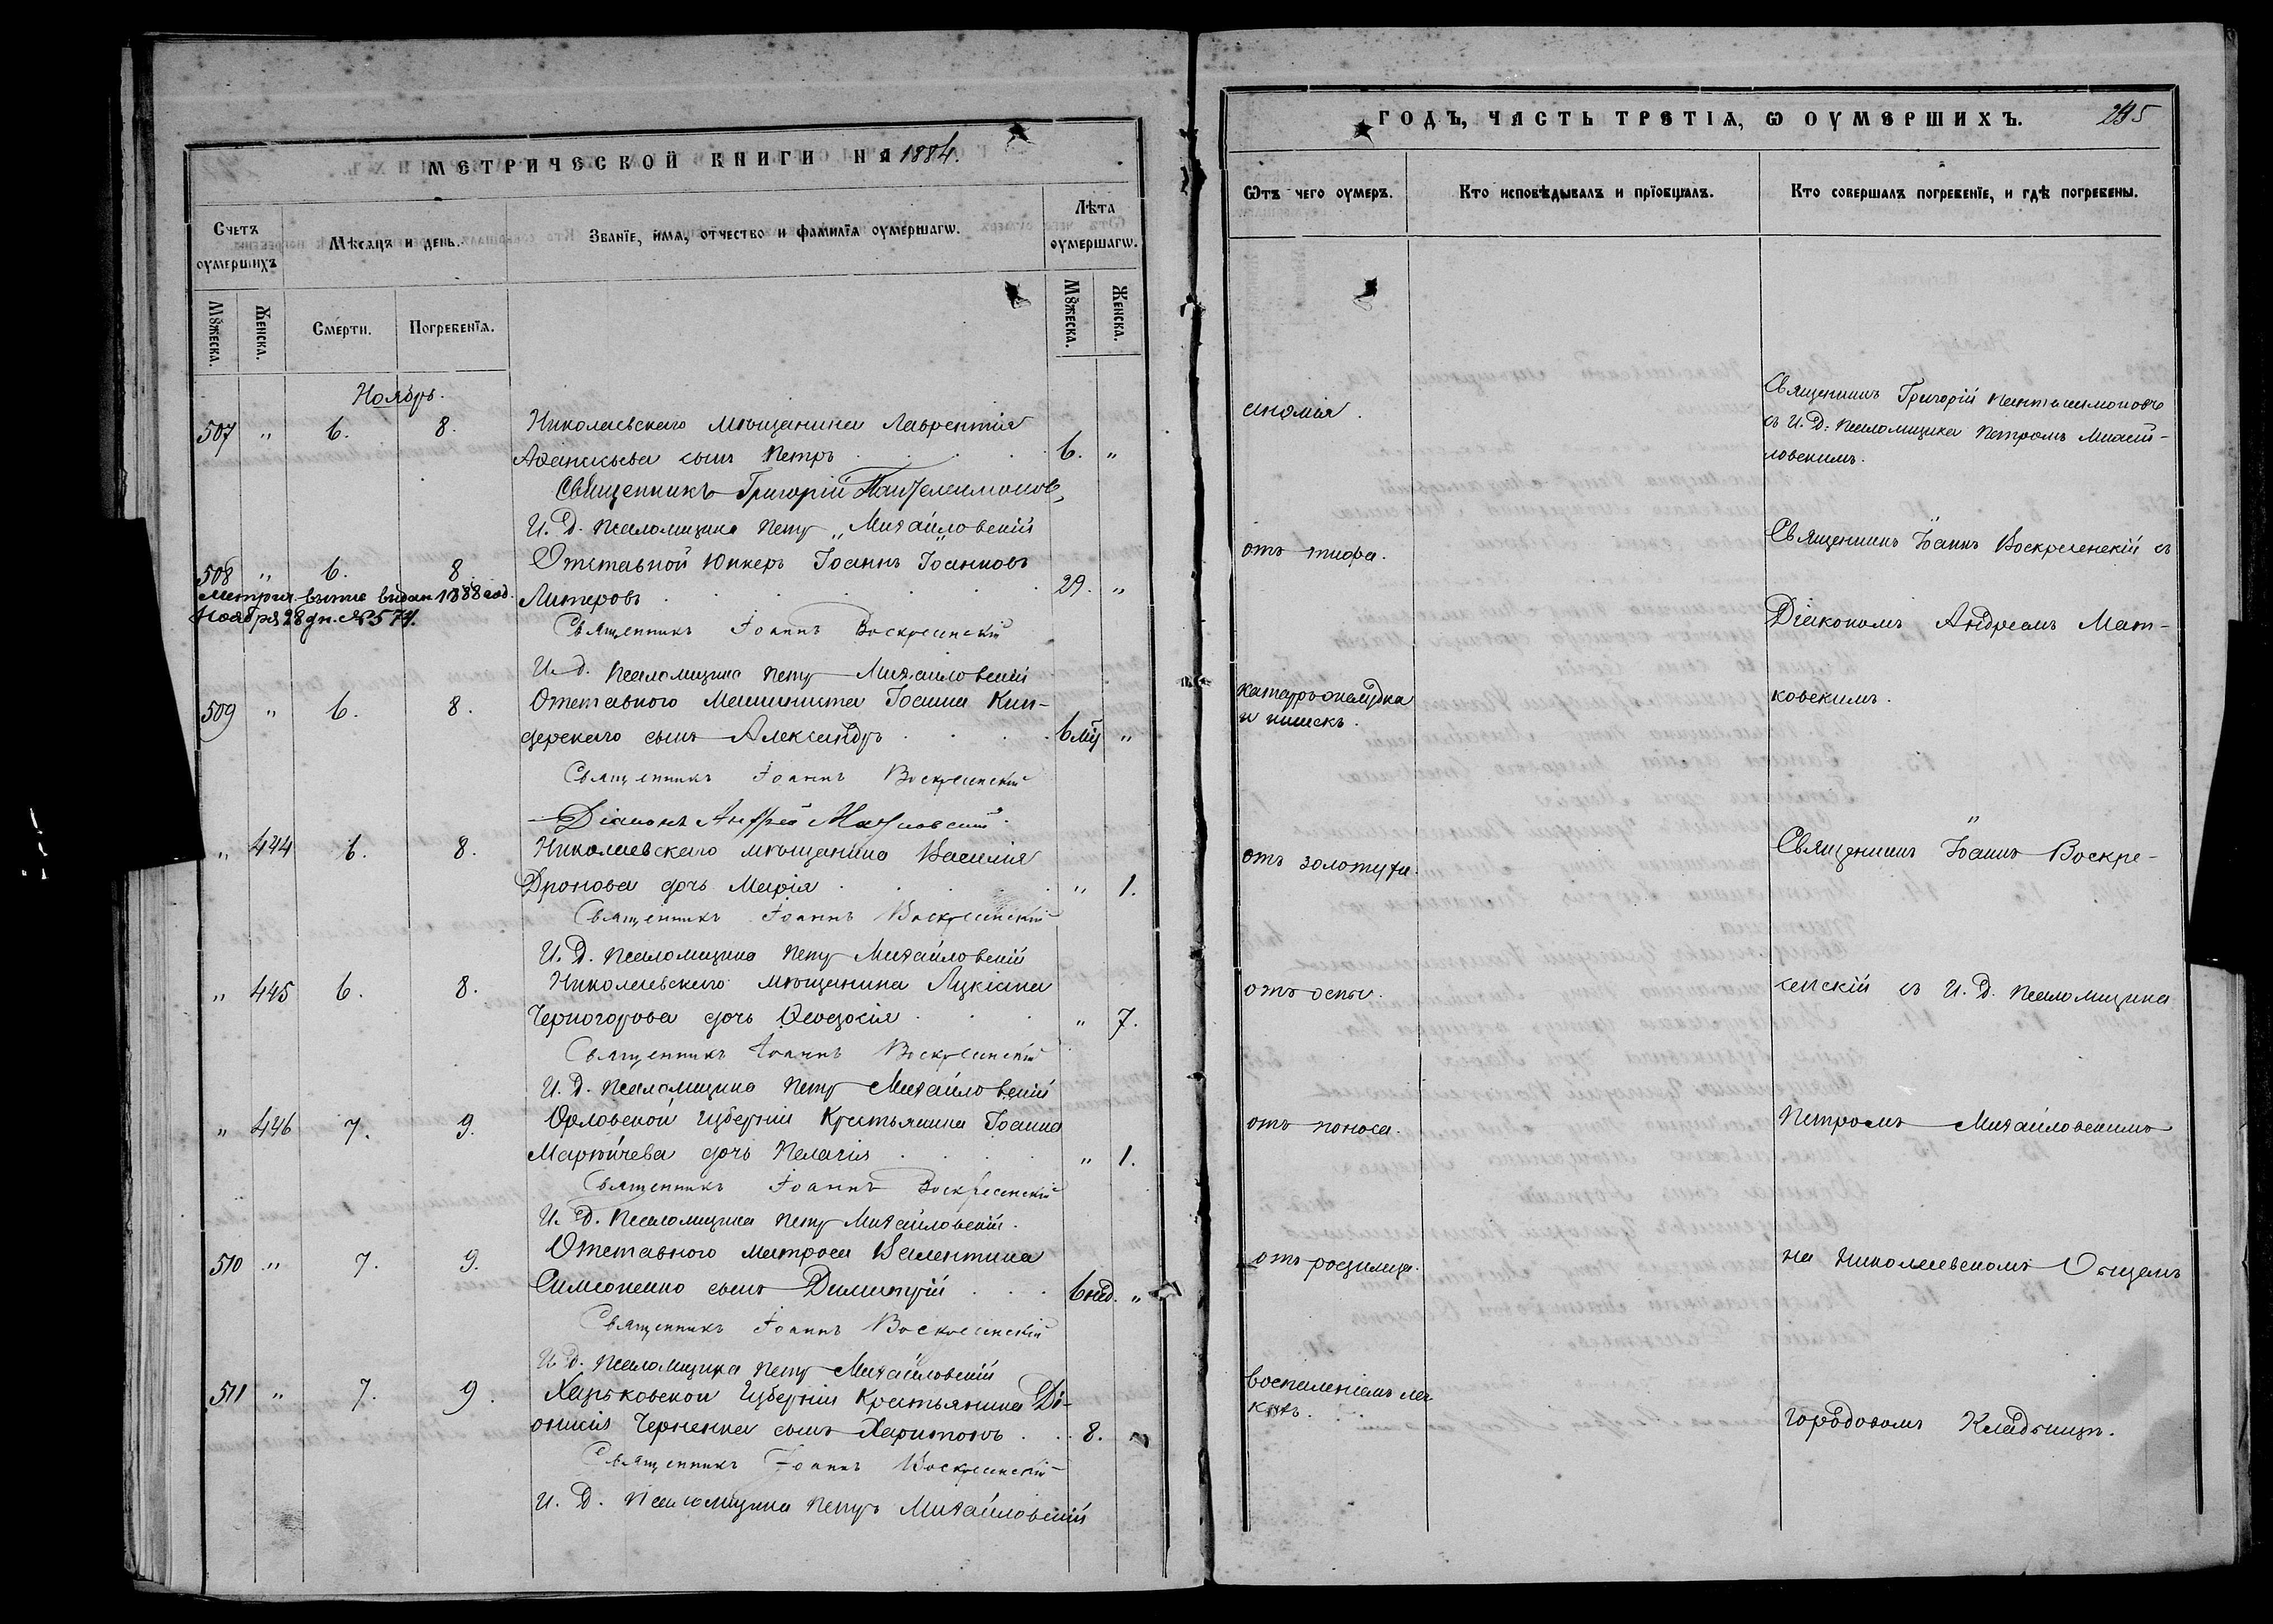 МЕТРИЧЕСКОЙ КНИГИ НА 1884.
Счетъ оумершихъ
Мѣсяцъ и день.
Званїе, имя, отчество и фамилїя оумершагѡ.
Лѣта оумершагѡ.
Мꙋжеска.
Женска.
Смерти.
Погребенїя.
Мꙋжеска.
Женска.
Ноябрь.
507 " 6. 8. Николаевскаго мѣщанина Лаврентія
Аѳанасьева сынъ Петръ . . . . 6. "
Священникъ Григорій Пантелеимоновъ,
И. Д. псаломщика Петръ Михайловскій
508 " 6. 8. Отставной Юнкеръ Іоаннъ Іоанновъ
Литеровъ . . . . . 29. "
Метрич. выпис выдан 1888 год.
Ноября 28 дн. № 574.
Священникъ Іоаннъ Воскресенскій
И. д. псаломщика Петръ Михайловскій
509 " 6. 8. Отставного Машиниста Іоанна Кин-
дерскаго сынъ Александръ . . . . 6 мц "
Священникъ Іоаннъ Воскресенскій
Діаконъ Андрей Матковскій
" 444 6. 8. Николаевскаго мѣщанина Василія
Дронова дочь Марія . . . . . " 1.
Священникъ Іоаннъ Воскресенскій
И. Д. псаломщика Петръ Михайловскій
" 445 6. 8. Николаевскаго мѣщанина Лукіана
Черногорова дочь Ѳеодосія . . . " 7.
Священникъ Іоаннъ Воскресенскій
И. Д. псаломщика Петръ Михайловскій
" 446 7. 9. Орловской губерніи Крестьянина Іоанна
дочь Пелагія . . . . " 1.
Священникъ Іоаннъ Воскресенскій
И. Д. Псаломщика Петръ Михайловскій.
510 " 7. 9. Отставного матроса Валентина
Симоненко сынъ Димитрій . . . 6 нед. "
Священникъ Іоаннъ Воскресенскій
И. Д. псаломщика Петръ Михайловскій
511 " 7. 9. Харьковской губерніи Крестьянина Ді-
онисія Черненка сынъ Харитонъ . . 8. "
Священникъ Іоаннъ Воскресенскій
И. Д. Псаломщика Петръ Михайловскій
ГОДЪ, ЧАСТЬ ТРЕТІЯ, Ѡ ОУМЕРШИХЪ. 295
Ѿтъ чего оумеръ.
Кто исповѣдывалъ и прїобщалъ.
Кто совершалъ погребенїе, и гдѣ погребены.
Священникъ Григорій Пантелеимоновъ
съ И. Д: псаломщика Петромъ Михай-
ловскимъ.
отъ тифа.
Священникъ Іоаннъ Воскресенскій съ
Діакономъ Андреемъ Мат-
ковскимъ.
катарръ желудка
и кишекъ.
отъ золотухи.
Священникъ Іоаннъ Воскре-
отъ оспы.
сенскій съ И. Д. псаломщика
отъ поноса.
Петромъ Михайловскимъ
отъ родимца.
на Николаевскомъ Общемъ
воспаленіемъ лег
кихъ.
городовомъ Кладбищѣ.